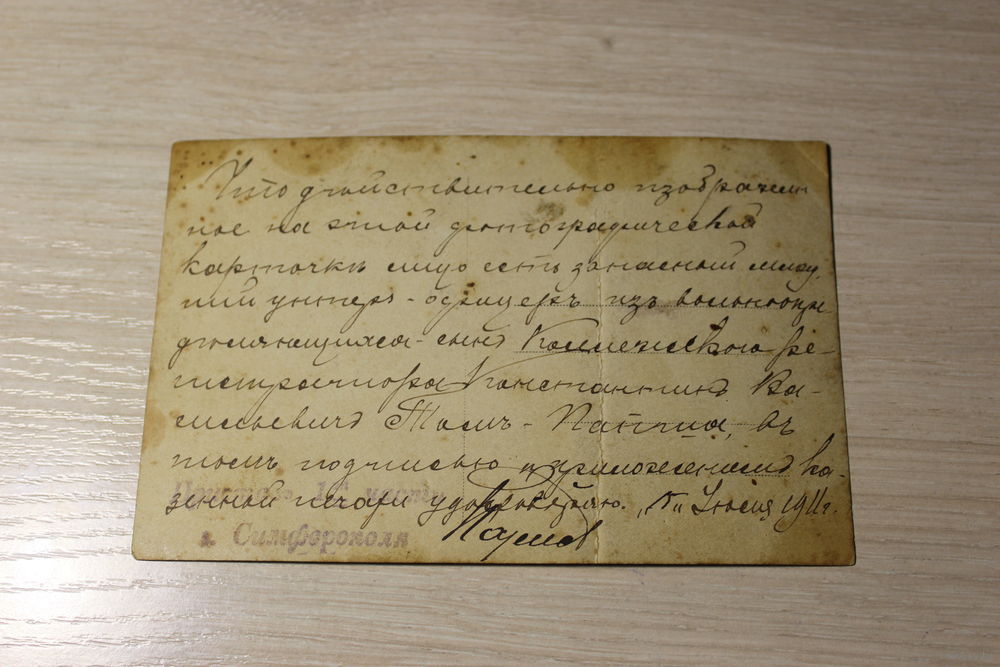 Что действительно изображен
ное на этой фотографической
карточкѣ лицо есть запасный млад
шій унтеръ-офицеръ изъ вольноопре
дѣляющихся-сынъ Коллежскаго ре-
гистратора Константинъ Ва-
сильевичъ въ
томъ подписью и приложеніемъ ка-
зенной печати удостовѣряю. Іюля 1911 г.
г. Симферополя